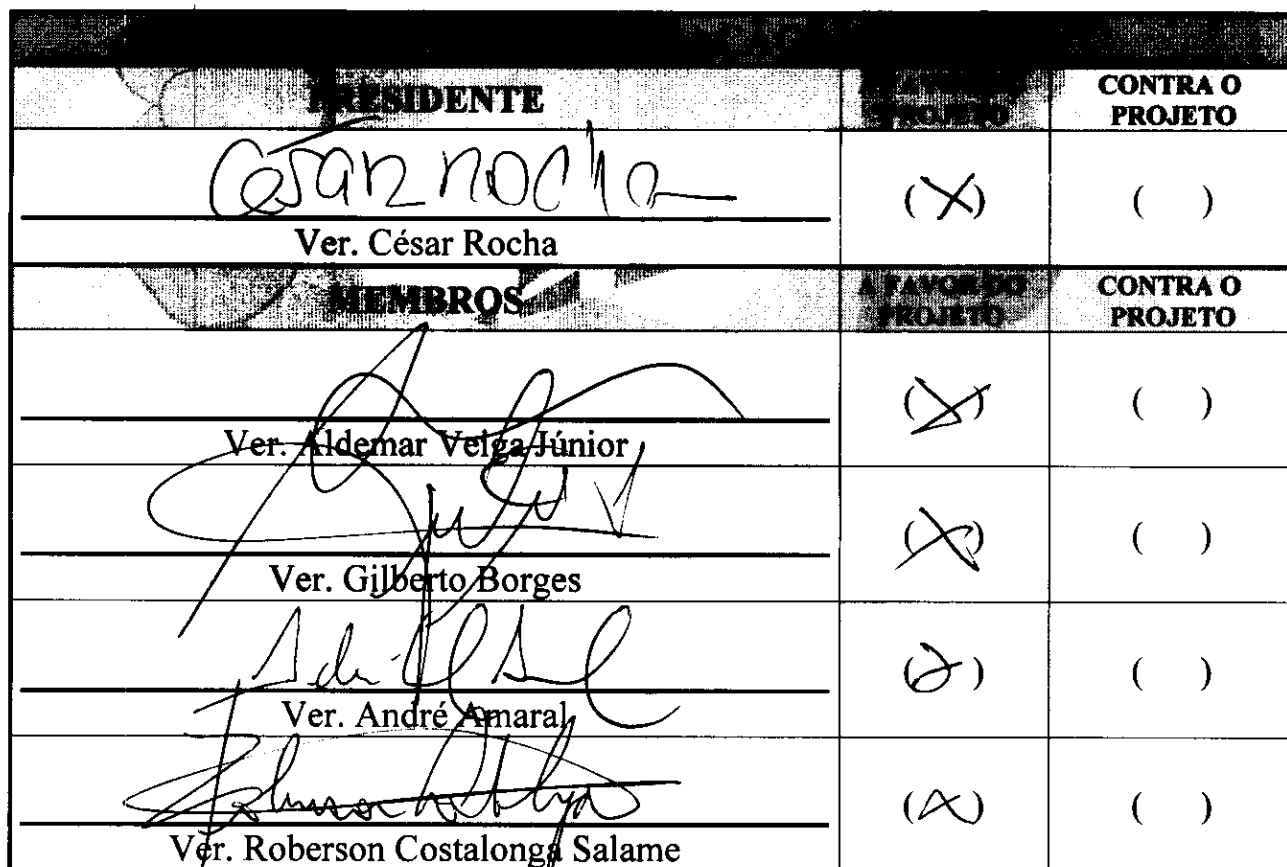 PRESIDENTE
PROJETO
CONTRA O
PROJETO
César rocha
(X) ( )
Ver. César Rocha
MEMBROS
A FAVOR DO
PROJETO
CONTRA O
PROJETO
(X) ( )
Ver. Aldemar Veiga Júnior
(X) ( )
Ver. Gilberto Borges
(X) ( )
Ver. André Amaral
(X) ( )
Ver. Roberson Costalonga Salame